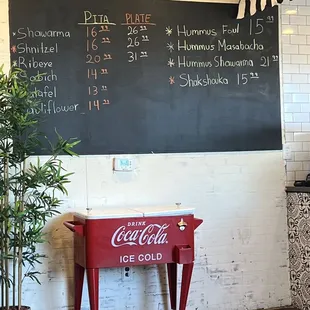 Pita Plate
Shawarma 16.99 26.99
Shnitzel 16.99 26.99
Ribeye 20.99 31.99
14.99
13.99
Cauliflower 14.99
Hummus Foul 15.99
Hummus Masabacha
Hummus Shawarma 21.99
Shakshouka 15.99
DRINK
Coca-Cola
ICE COLD